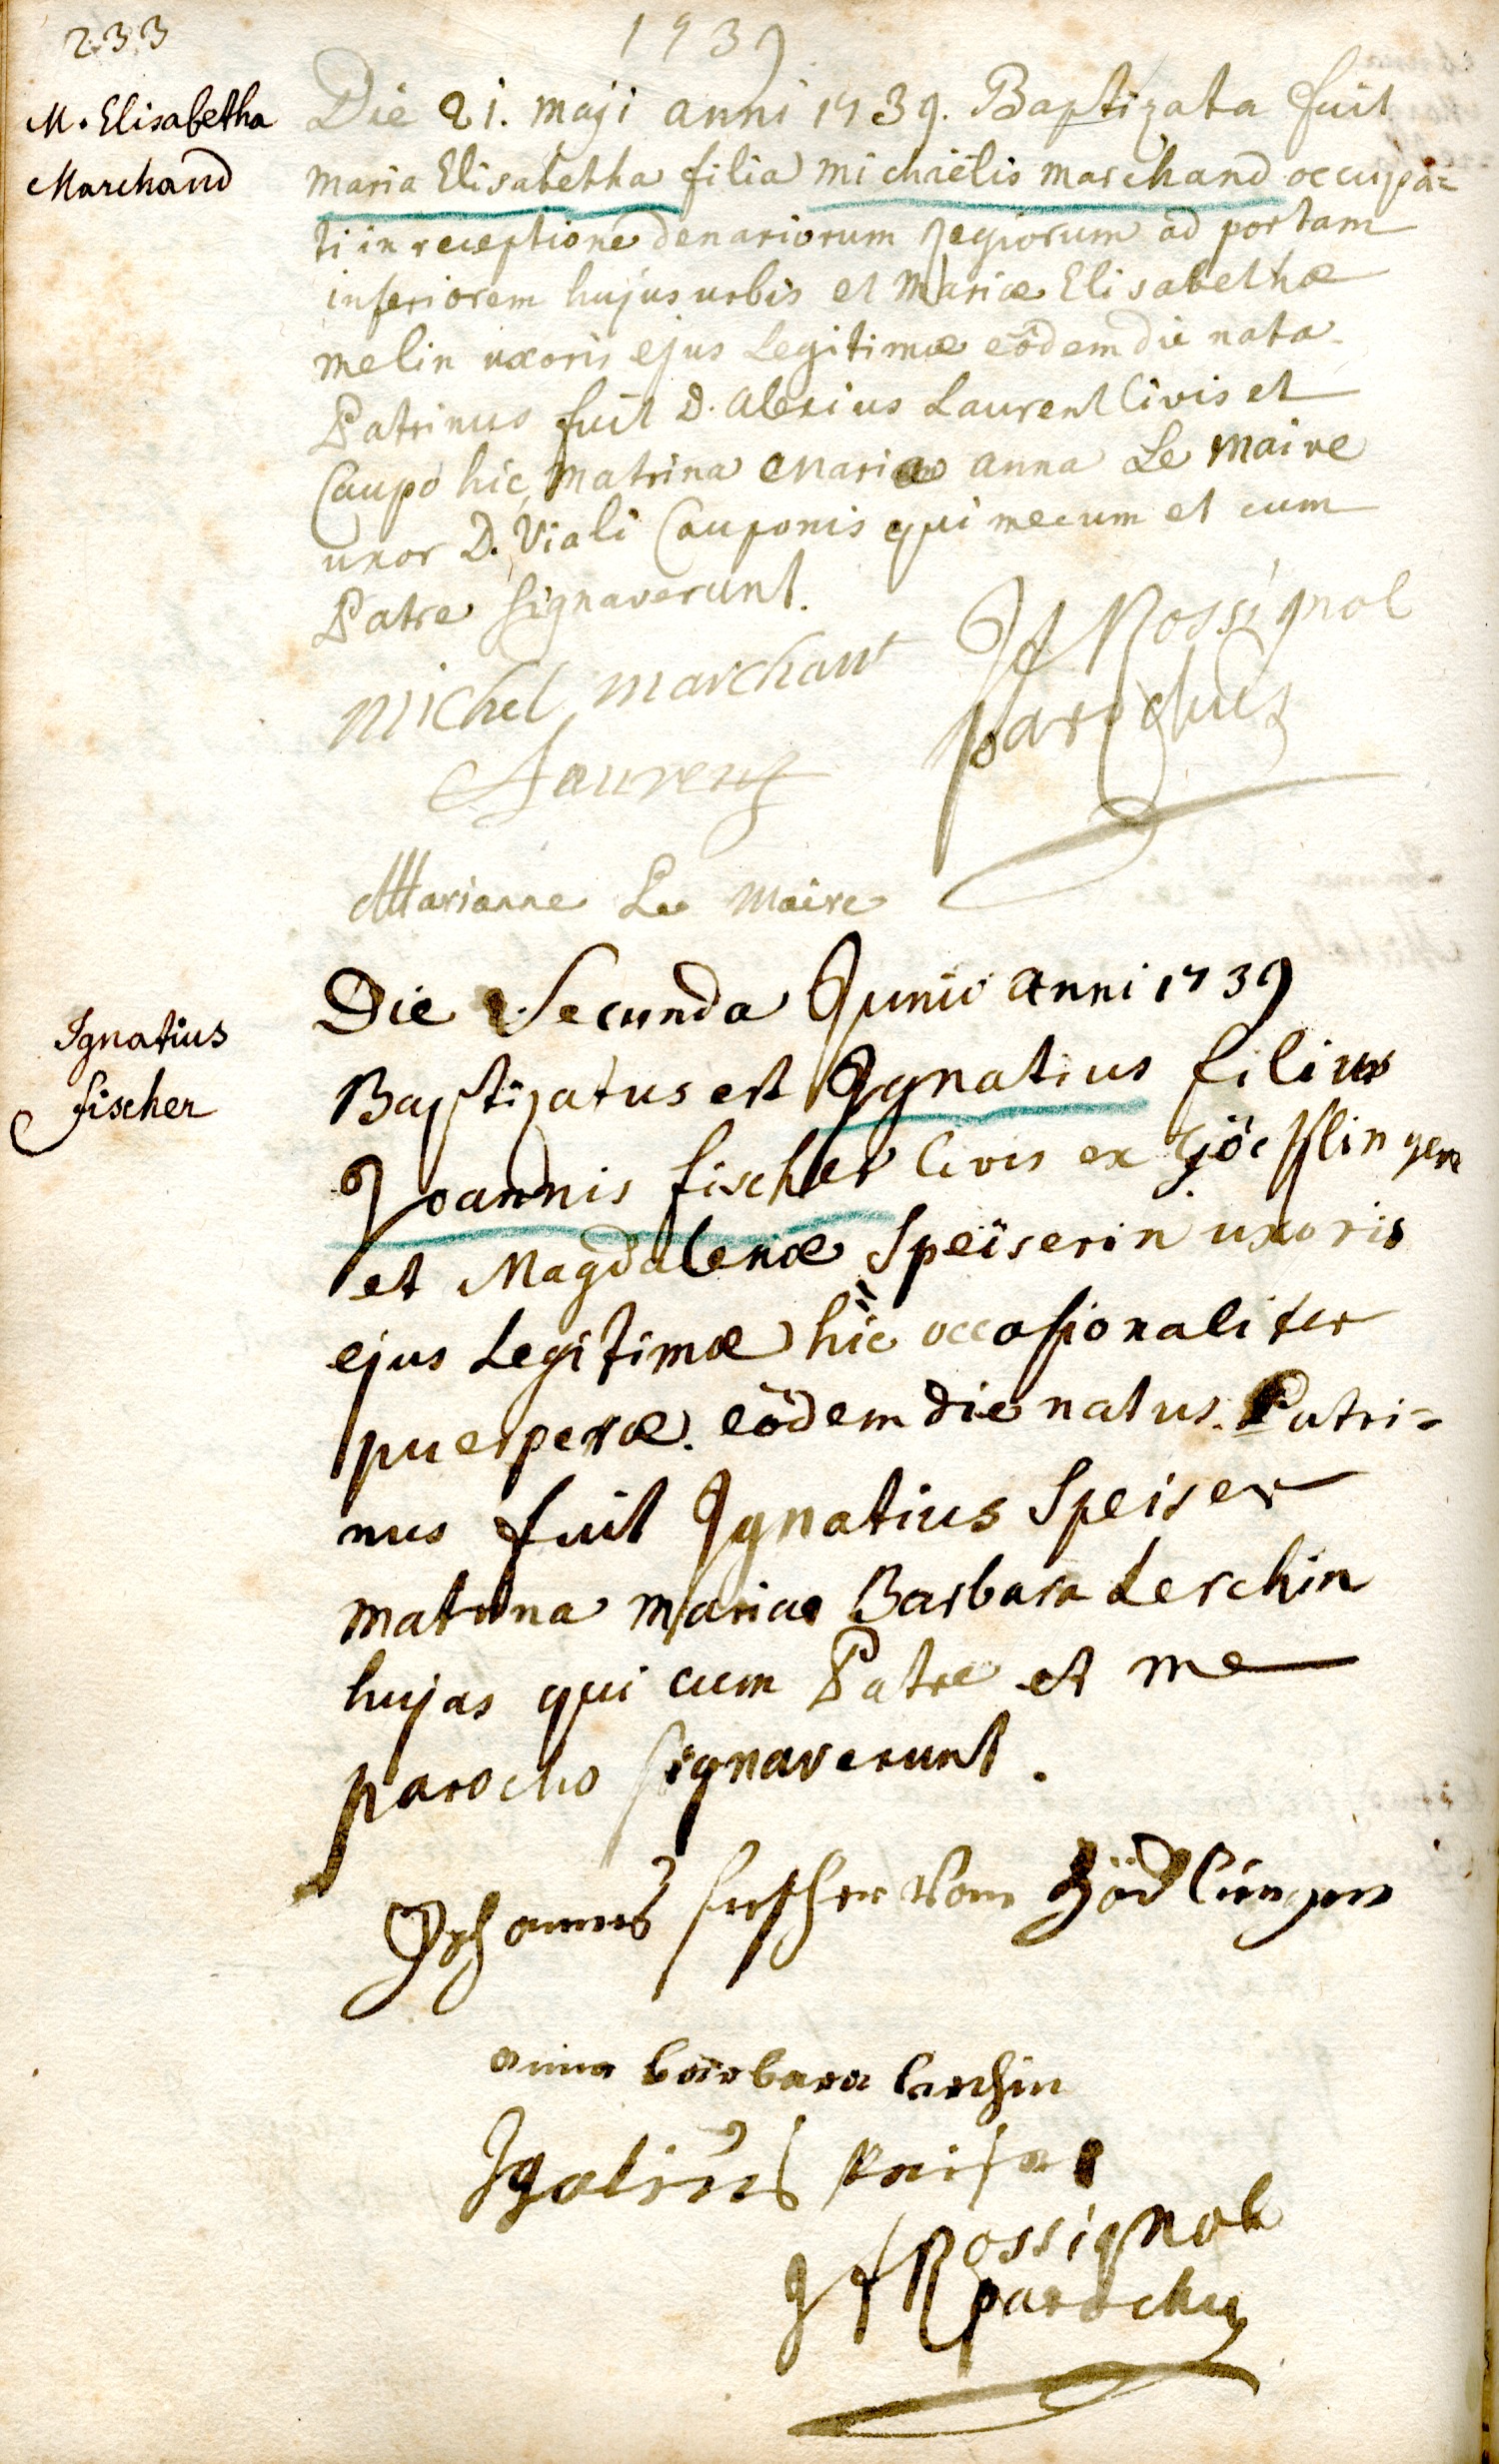 233
1739
M. Elisabetha
Marchand
Die 21. maji anni 1739. Baptizata fuit
maria Elisabetha filia michaëlis marchand occupa=
ti in receptione denariorum regiorum ad portam
inferiorem hujus urbis et Mariæ Elisabethæ
melin uxoris ejus Legitimæ eôdem die nata.
Patrinus fuit D. Alexius Laurent Civis et
Caupo hic, Matrina Maria anna Le Maire
uxor D. Viali Cauponis qui mecum et cum
Patre signaverunt.
Michel marchant
JF Rossignol
parochus
Laurent
Marianne Le Maire
Ignatius
fischer
Die Secunda Junii anni 1739
Baptizatus est Ignatius filius
Joannis fischer Civis ex Göcklingen
et Magdalenæ Speiserin uxoris
ejus Legitimæ hic occasionaliter
puerperæ. eôdem die natus. Patri=
nus fuit Ignatius Speiser
matrina maria Barbara Lerchin
hujas qui cum Patre et me
parocho signaverunt.
Johannes fischer Von
anna barbara lerchin
JF Rossignol
parochus